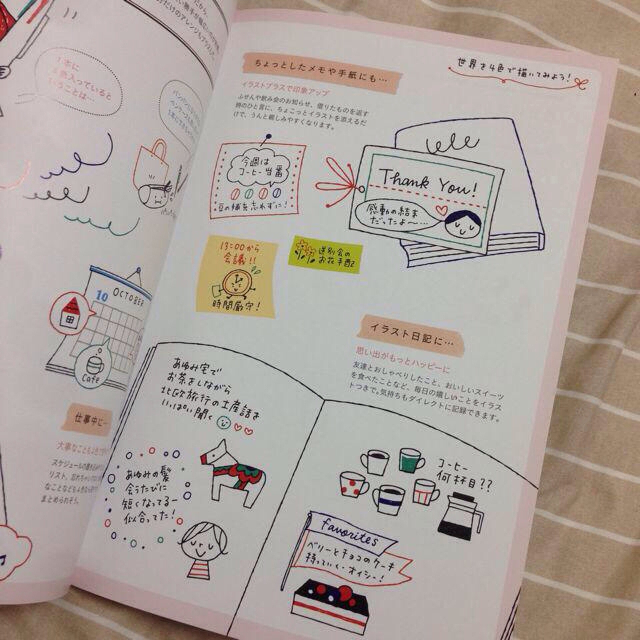 1本に
4色入っていると
いうことは…
10
OCTOBER
Cafe
仕事中に…
世界を4色で描いてみよう!
ちょっとしたメモや手紙にも…
イラストプラスで印象アップ
ふせんや飲み会のお知らせ、借りたものを返す
時のひと言に、ちょこっとイラストを添えるだ
けで、うんと親しみやすくなります。
今週は
コーヒー当番
豆の補充忘れずに!
Thank You!
感動の結末
だったよ〜…
13:00から
会議!!
時間厳守!
送別会の
お花手配
イラスト日記に…
思い出がもっとハッピーに
友達とおしゃべりしたこと、おいしいスイーツ
を食べたことなど、毎日の嬉しいことをイラス
トつきで。気持ちもダイレクトに記録できます。
あゆみ宅で
お茶をしながら
北欧旅行の土産話を
いっぱい聞く
あゆみの髪
会うたびに
短くなってるー
似合ってた!
コーヒー
何杯目??
favorites
ベリーとチョコのケーキ
持っていく・オイシー!